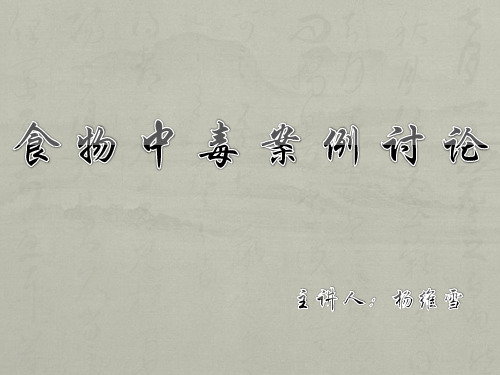 食物中毒案例讨论
主讲人：杨维雪